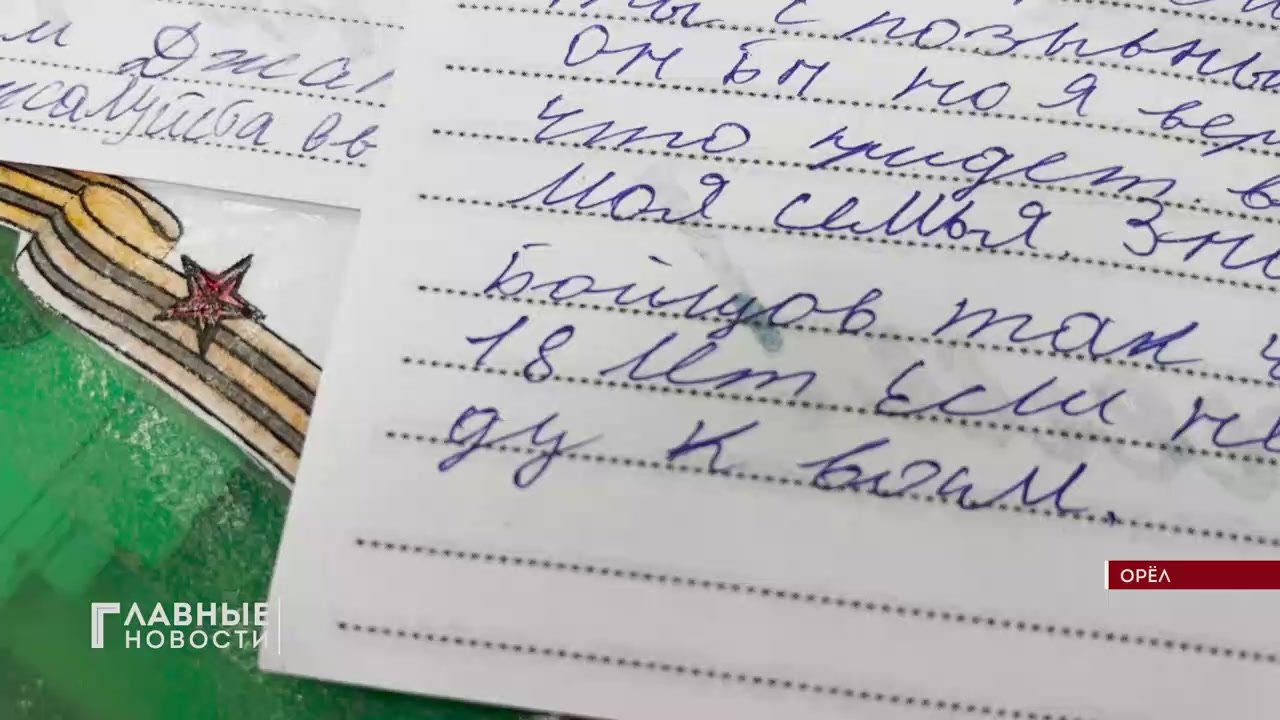 м Джа
жалуйста вв
ты с позывны
он бп но я вер
что придет. в
моя семья. Зн
Бойцов так
18 лет Если не
ду к вам.
ОРЁЛ
ГЛАВНЫЕ
НОВОСТИ